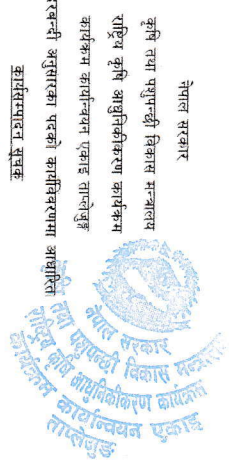 नेपाल सरकार
कृषि तथा पशुपन्छी विकास मन्त्रालय
राष्ट्रिय कृषि आधुनिकीकरण कार्यक्रम
कार्यक्रम कार्यान्वयन एकाइ ताप्लेजुङ
अनुसारका पदको कार्यविवरणमा आधारित
कार्यसम्पादन सूचक
नेपाल सरकार
तथा पशुपन्छी विकास
राष्ट्रिय कृषि आधुनिकीकरण कार्यक्रम
कार्यक्रम कार्यान्वयन एकाइ
ताप्लेजुङ